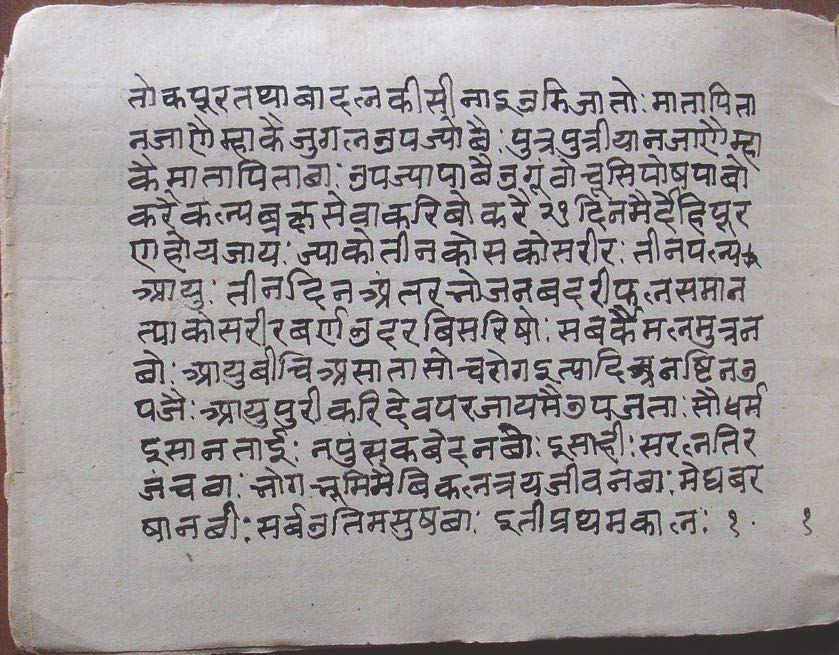 तो कपूर तथा बादल की सी नाइ उमि जातो: माता पिता
न जाणै म्हाकै जुगल उपज्यो बै: पुत्र पुत्री या न जाणै म्हा
कै माता पिता बा: उपज्या पाबै उगूंवो चुसि पोष पाबो
करै कल्पब्रक्ष सेवा करिबो करै २१ दिन मै देहि पूर
ण होय जाय: ज्याको तीन कोस को सरीर: तीन पल्य
आयु: तीन दिन अंतर भोजन बदरीफल समान
त्याको सरीर बर्ण उदर बि सरिषो: सब कै मल मुत्र न
बो: आयु बीचि असाता सोच रोग इत्यादि अनष्टि न उ
पजै: आयु पुरी करि देव परजाय मै उपजता: सौधर्म
इसान ताई: नपुंसक बेद न बौ: इसाही: सरल तिर
जंच बा: भोग भूमि मे बिकलत्रय जीव न बा: मेघ बर
षा न बी: सर्ब उतिम सुष बा: इती प्रथम काल: १.
१